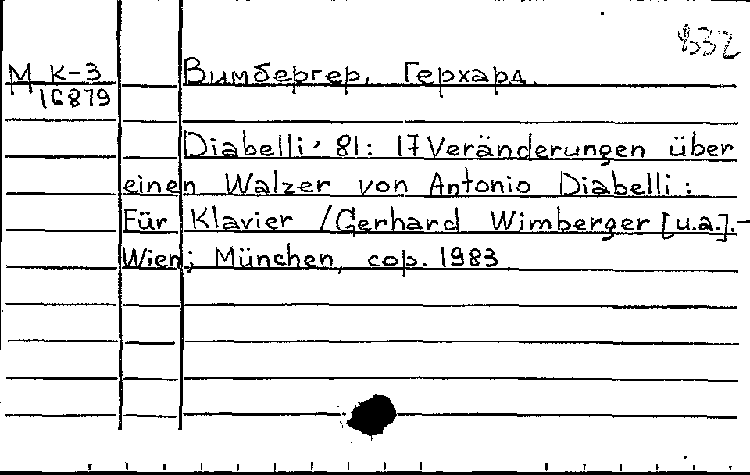 832
М К-3
16879
Вимбергер, Герхард.
Diabelli' 81: 17 Veränderungen über
einen Walzer von Antonio Diabelli:
Für Klavier / Gerhard Wimberger [u.a.].-
Wien; München, cop. 1983